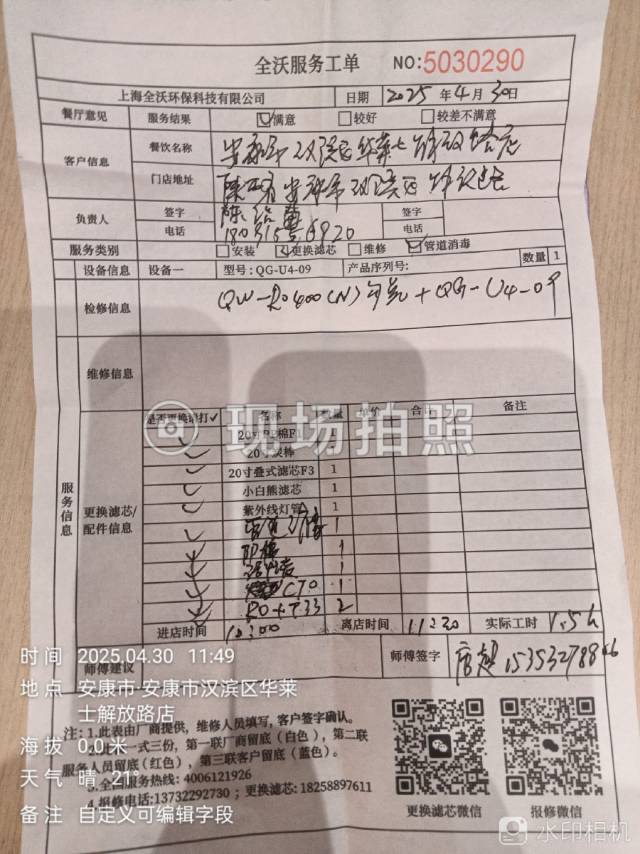 全沃服务工单 NO:5030290
上海全沃环保科技有限公司 日期 2025年4月30日
餐厅意见 服务结果 满意 较好 较差不满意
客户信息 餐饮名称
门店地址 陕西省安康市汉滨区解放路
负责人 签字 签字
电话 电话
服务类别 安装 更换滤芯 维修 管道消毒
设备信息 设备一 型号:QG-U4-09 产品序列号: 数量 1
检修信息 QW-R0400(N) + QG-U4-09
维修信息
服务信息
更换滤芯/配件信息
是否更换请打✓ 名称 数量 单价 合计 备注
20寸PP棉F1
20寸炭棒
20寸叠式滤芯F3 1
小白熊滤芯 1
紫外线灯管 1
1
1
1
CTO 1
RO+T33 2
进店时间 10:00 离店时间 11:30 实际工时 1.5h
师傅建议 师傅签字
注:1.此表由厂商提供,维修人员填写,客户签字确认。
一式三份,第一联厂商留底(白色),第二联
服务人员留底(红色),第三联客户留底(蓝色)。
3.全国服务热线:4006121926
4.报修电话:13732292730;更换滤芯:18258897611
更换滤芯微信 报修微信
现场拍照
时间 2025.04.30 11:49
地点 安康市·安康市汉滨区华莱
士解放路店
海拔 0.0米
天气 晴 21°
备注 自定义可编辑字段
水印相机